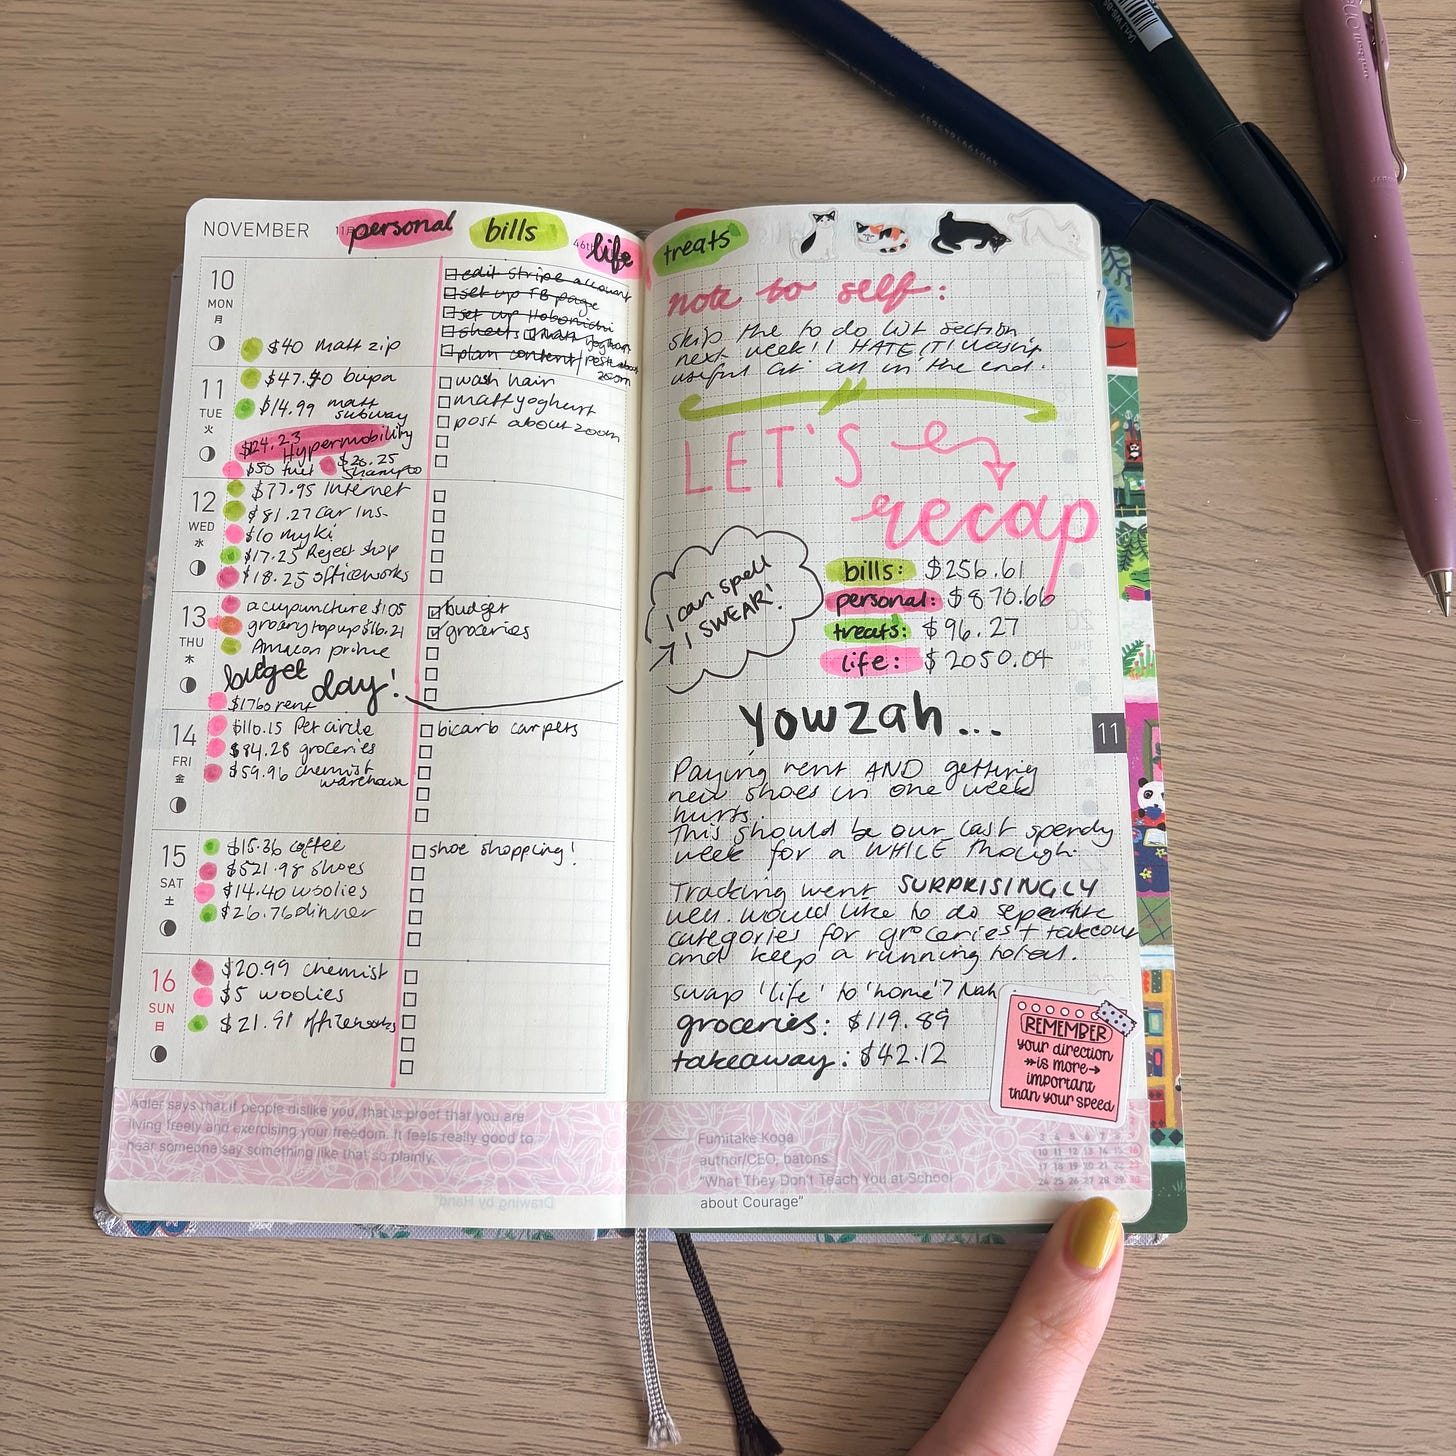 NOVEMBER
personal
bills
life
10
MON
月
$40 matt zip
edit stripe account
set up FB page
set up Hobonichi
sheets
matt yoghurt
plan content
zoom
11
TUE
火
$47.90 bupa
$14.99 matt
subway
$124.23
Hypermobility
$50 fuel
$26.25
shampoo
wash hair
matt yoghurt
post about zoom
12
WED
水
$77.95 Internet
$81.27 car ins.
$10 myki
$17.25 Reject shop
$18.25 officeworks
13
THU
木
acupuncture $105
grocery top up $16.21
Amazon prime
budget
day!
$1760 rent
budget
groceries
14
FRI
金
$110.15 Pet circle
$84.28 groceries
$59.96 chemist
warehouse
bicarb carpets
15
SAT
土
$15.36 coffee
$521.98 shoes
$14.40 woolies
$26.76 dinner
shoe shopping!
16
SUN
日
$20.99 chemist
$5 woolies
$21.91 officeworks
Adler says that if people dislike you, that is proof that you are
living freely and exercising your freedom. It feels really good to
hear someone say something like that so plainly.
treats
note to self:
skip the to do list section
next week!! I HATE IT! Wasn't
useful at all in the end.
LET'S
recap
I can spell
I SWEAR!
bills: $256.61
personal: $870.66
treats: $96.27
life: $2050.04
Yowzah...
Paying rent AND getting
new shoes in one week
hurts.
This should be our last spendy
week for a WHILE though.
Tracking went SURPRISINGLY
well. would like to do seperate
categories for groceries + takeout
and keep a running total.
swap 'life' to 'home'? Nah
groceries: $119.89
takeaway: $42.12
REMEMBER
your direction
is more
important
than your speed
11
Fumitake Koga
author/CEO, batons
"What They Don't Teach You at School
about Courage"
3 4 5 6 7 8 9
10 11 12 13 14 15 16
17 18 19 20 21 22 23
24 25 26 27 28 29 30